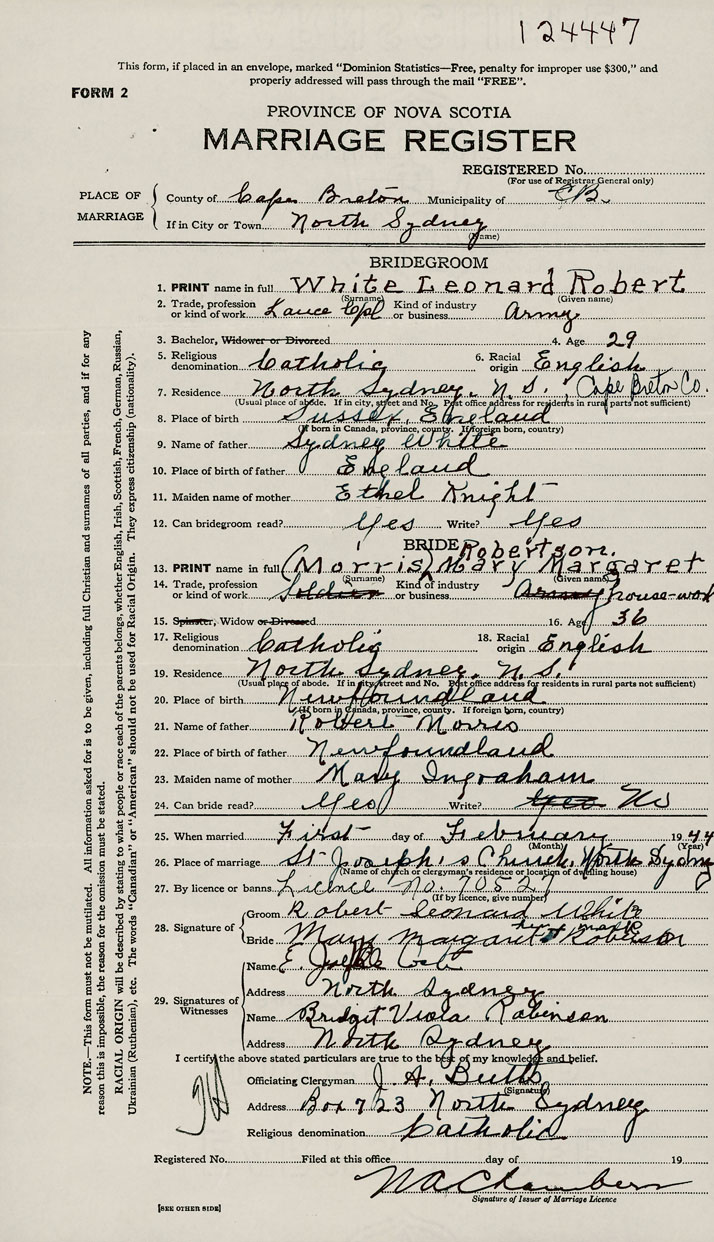 124447
This form, if placed in an envelope, marked "Dominion Statistics—Free, penalty for improper use $300," and
properly addressed will pass through the mail "FREE".
FORM 2
PROVINCE OF NOVA SCOTIA
MARRIAGE REGISTER
REGISTERED No.
(For use of Registrar General only)
PLACE OF MARRIAGE
County of Cape Breton Municipality of CB.
If in City or Town North Sydney
(Name)
BRIDEGROOM
1. PRINT name in full White Leonard Robert
(Surname) (Given name)
2. Trade, profession or kind of work Lance Cpl Kind of industry or business Army
3. Bachelor, Widower or Divorced 4. Age 29
5. Religious denomination Catholic 6. Racial origin English
7. Residence North Sydney, N.S., Cape Breton Co.
(Usual place of abode. If in city, street and No. Post office address for residents in rural parts not sufficient)
8. Place of birth Sussex, England
(If born in Canada, province, county. If foreign born, country)
9. Name of father Sydney White
10. Place of birth of father England
11. Maiden name of mother Ethel Knight
12. Can bridegroom read? Yes Write? Yes
BRIDE Robertson.
13. PRINT name in full (Morris) Mary Margaret
(Surname) (Given name)
14. Trade, profession or kind of work Soldier Kind of industry or business Army house-work
15. Spinster, Widow or Divorced 16. Age 36
17. Religious denomination Catholic 18. Racial origin English
19. Residence North Sydney, N.S.
(Usual place of abode. If in city, street and No. Post office address for residents in rural parts not sufficient)
20. Place of birth Newfoundland
(If born in Canada, province, county. If foreign born, country)
21. Name of father Robert Morris
22. Place of birth of father Newfoundland
23. Maiden name of mother Mary Ingraham
24. Can bride read? Yes Write? Yes No
25. When married First day of February 1944
(Month) (Year)
26. Place of marriage St. Joseph's Church, North Sydney
(Name of church or clergyman's residence or location of dwelling house)
27. By licence or banns Licence No. 70527
(If by licence, give number)
28. Signature of
Groom Robert Leonard White
her mark
Bride Mary Margaret x Roberson
29. Signatures of Witnesses
Name E.
Address North Sydney
Name Bridget Viola Robinson
Address North Sydney
I certify the above stated particulars are true to the best of my knowledge and belief.
Officiating Clergyman J. A. Butts
(Signature)
Address Box 723 North Sydney
Religious denomination Catholic
Registered No. Filed at this office day of 19
N A Chambers
Signature of Issuer of Marriage Licence
[SEE OTHER SIDE]
NOTE.—This form must not be mutilated. All information asked for is to be given, including full Christian and surnames of all parties, and if for any
reason this is impossible, the reason for the omission must be stated.
RACIAL ORIGIN will be described by stating to what people or race each of the parents belongs, whether English, Irish, Scottish, French, German, Russian,
Ukrainian (Ruthenian), etc. The words "Canadian" or "American" should not be used for Racial Origin. They express citizenship (nationality).